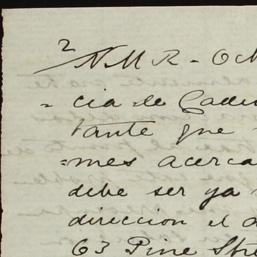 2
N M R - Oct
= cia de Cade
tante que
= mes acerca
debe ser ya
direccion el d
63 Pine Stre